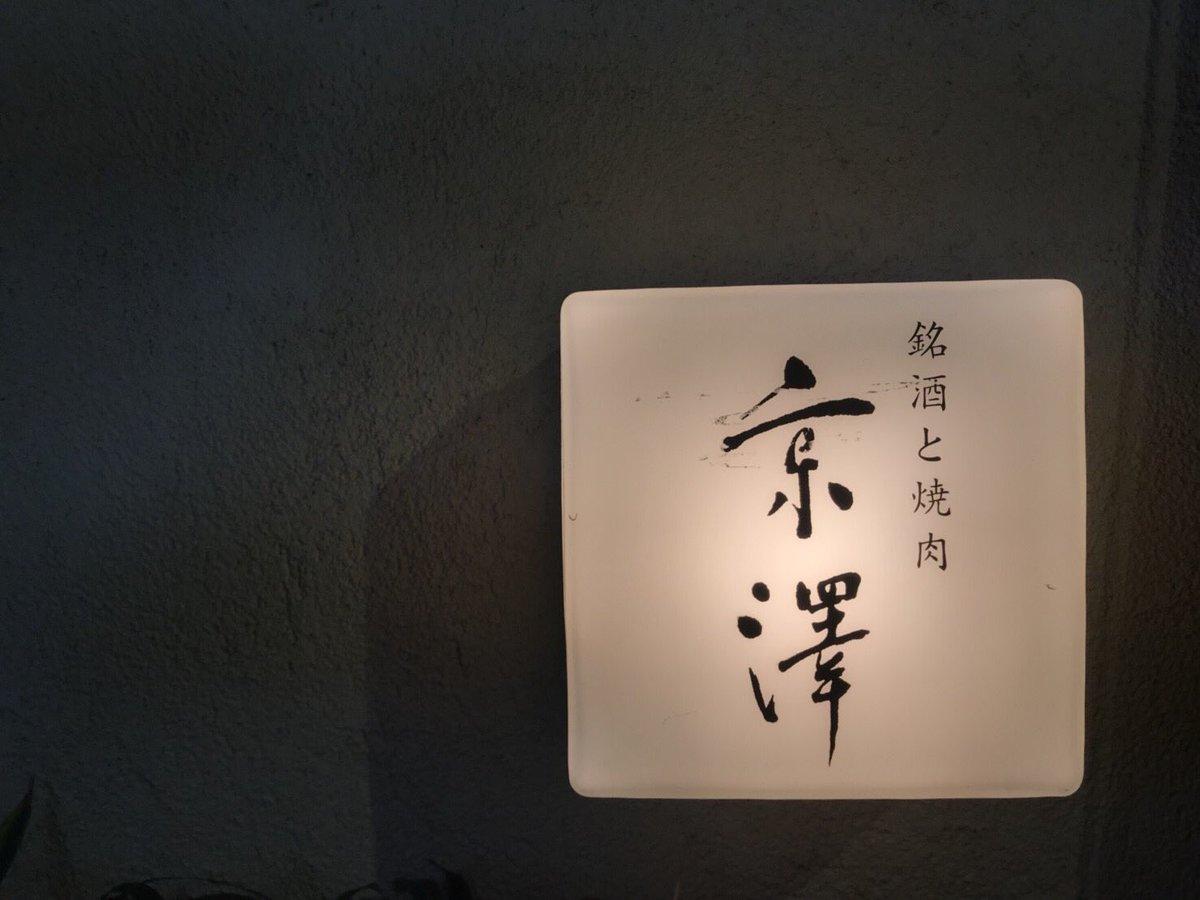 銘酒と焼肉
京澤